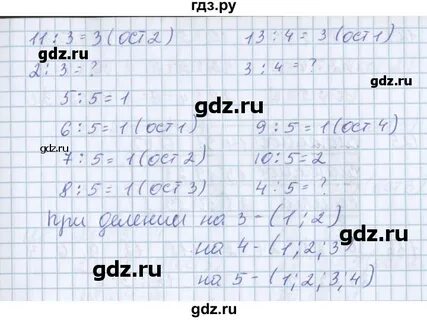 гдз.ру
11 : 3 = 3 (ост 2) 13 : 4 = 3 (ост 1)
2 : 3 = ? 3 : 4 = ?
gdz.ru gdz.ru
5 : 5 = 1
gdz.ru
6 : 5 = 1 (ост 1) 9 : 5 = 1 (ост 4)
gdz.ru
7 : 5 = 1 (ост 2) 10 : 5 = 2
gdz.ru
8 : 5 = 1 (ост 3) 4 : 5 = ?
gdz.ru
При делении на 3 - (1; 2)
на 4 - (1; 2; 3)
gdz.ru gdz.ru
на 5 - (1; 2; 3; 4)
gdz.ru